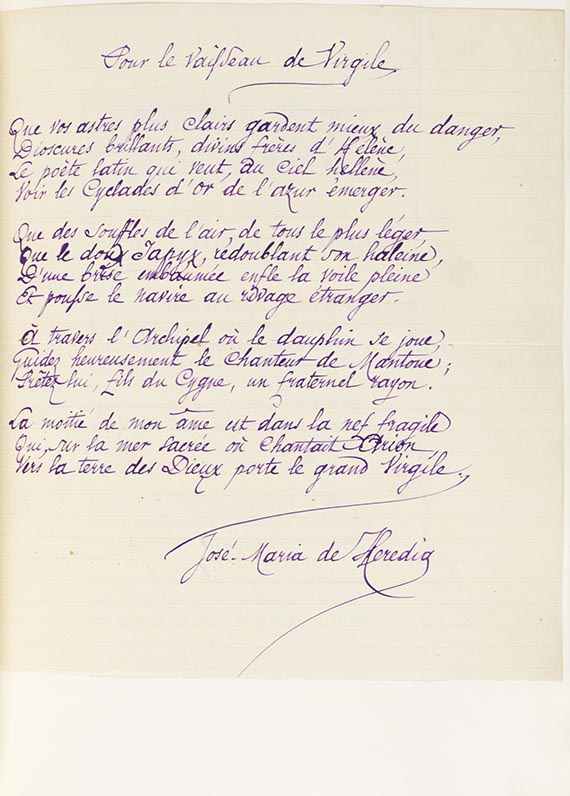 Pour le Vaisseau de Virgile
Que vos astres plus clairs gardent mieux du danger,
Dioscures brillants, divins frères d'Hélène,
Le poète latin qui veut, au ciel hellène,
Voir les Cyclades d'or de l'azur émerger.
Que des souffles de l'air, de tous le plus léger,
Que le doux Iapyx, redoublant son haleine,
D'une brise embaumée enfle la voile pleine
Et pousse le navire au rivage étranger.
À travers l'Archipel où le dauphin se joue,
Guidez heureusement le Chanteur de Mantoue ;
Prêtez lui, fils du Cygne, un fraternel rayon.
La moitié de mon âme est dans la nef fragile
Qui, sur la mer sacrée où chantait Arion,
Vers la terre des Dieux porte le grand Virgile.
José-Maria de Heredia